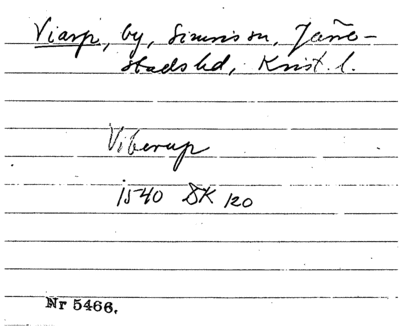 Viarp, by, Simris sn, Järre-
stads hd, Krist. l.
Viberup
1540 SK 120
Nr 5466.